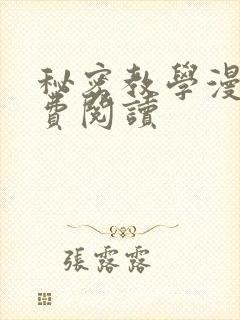 秘密教學漫
費閱讀
張露露